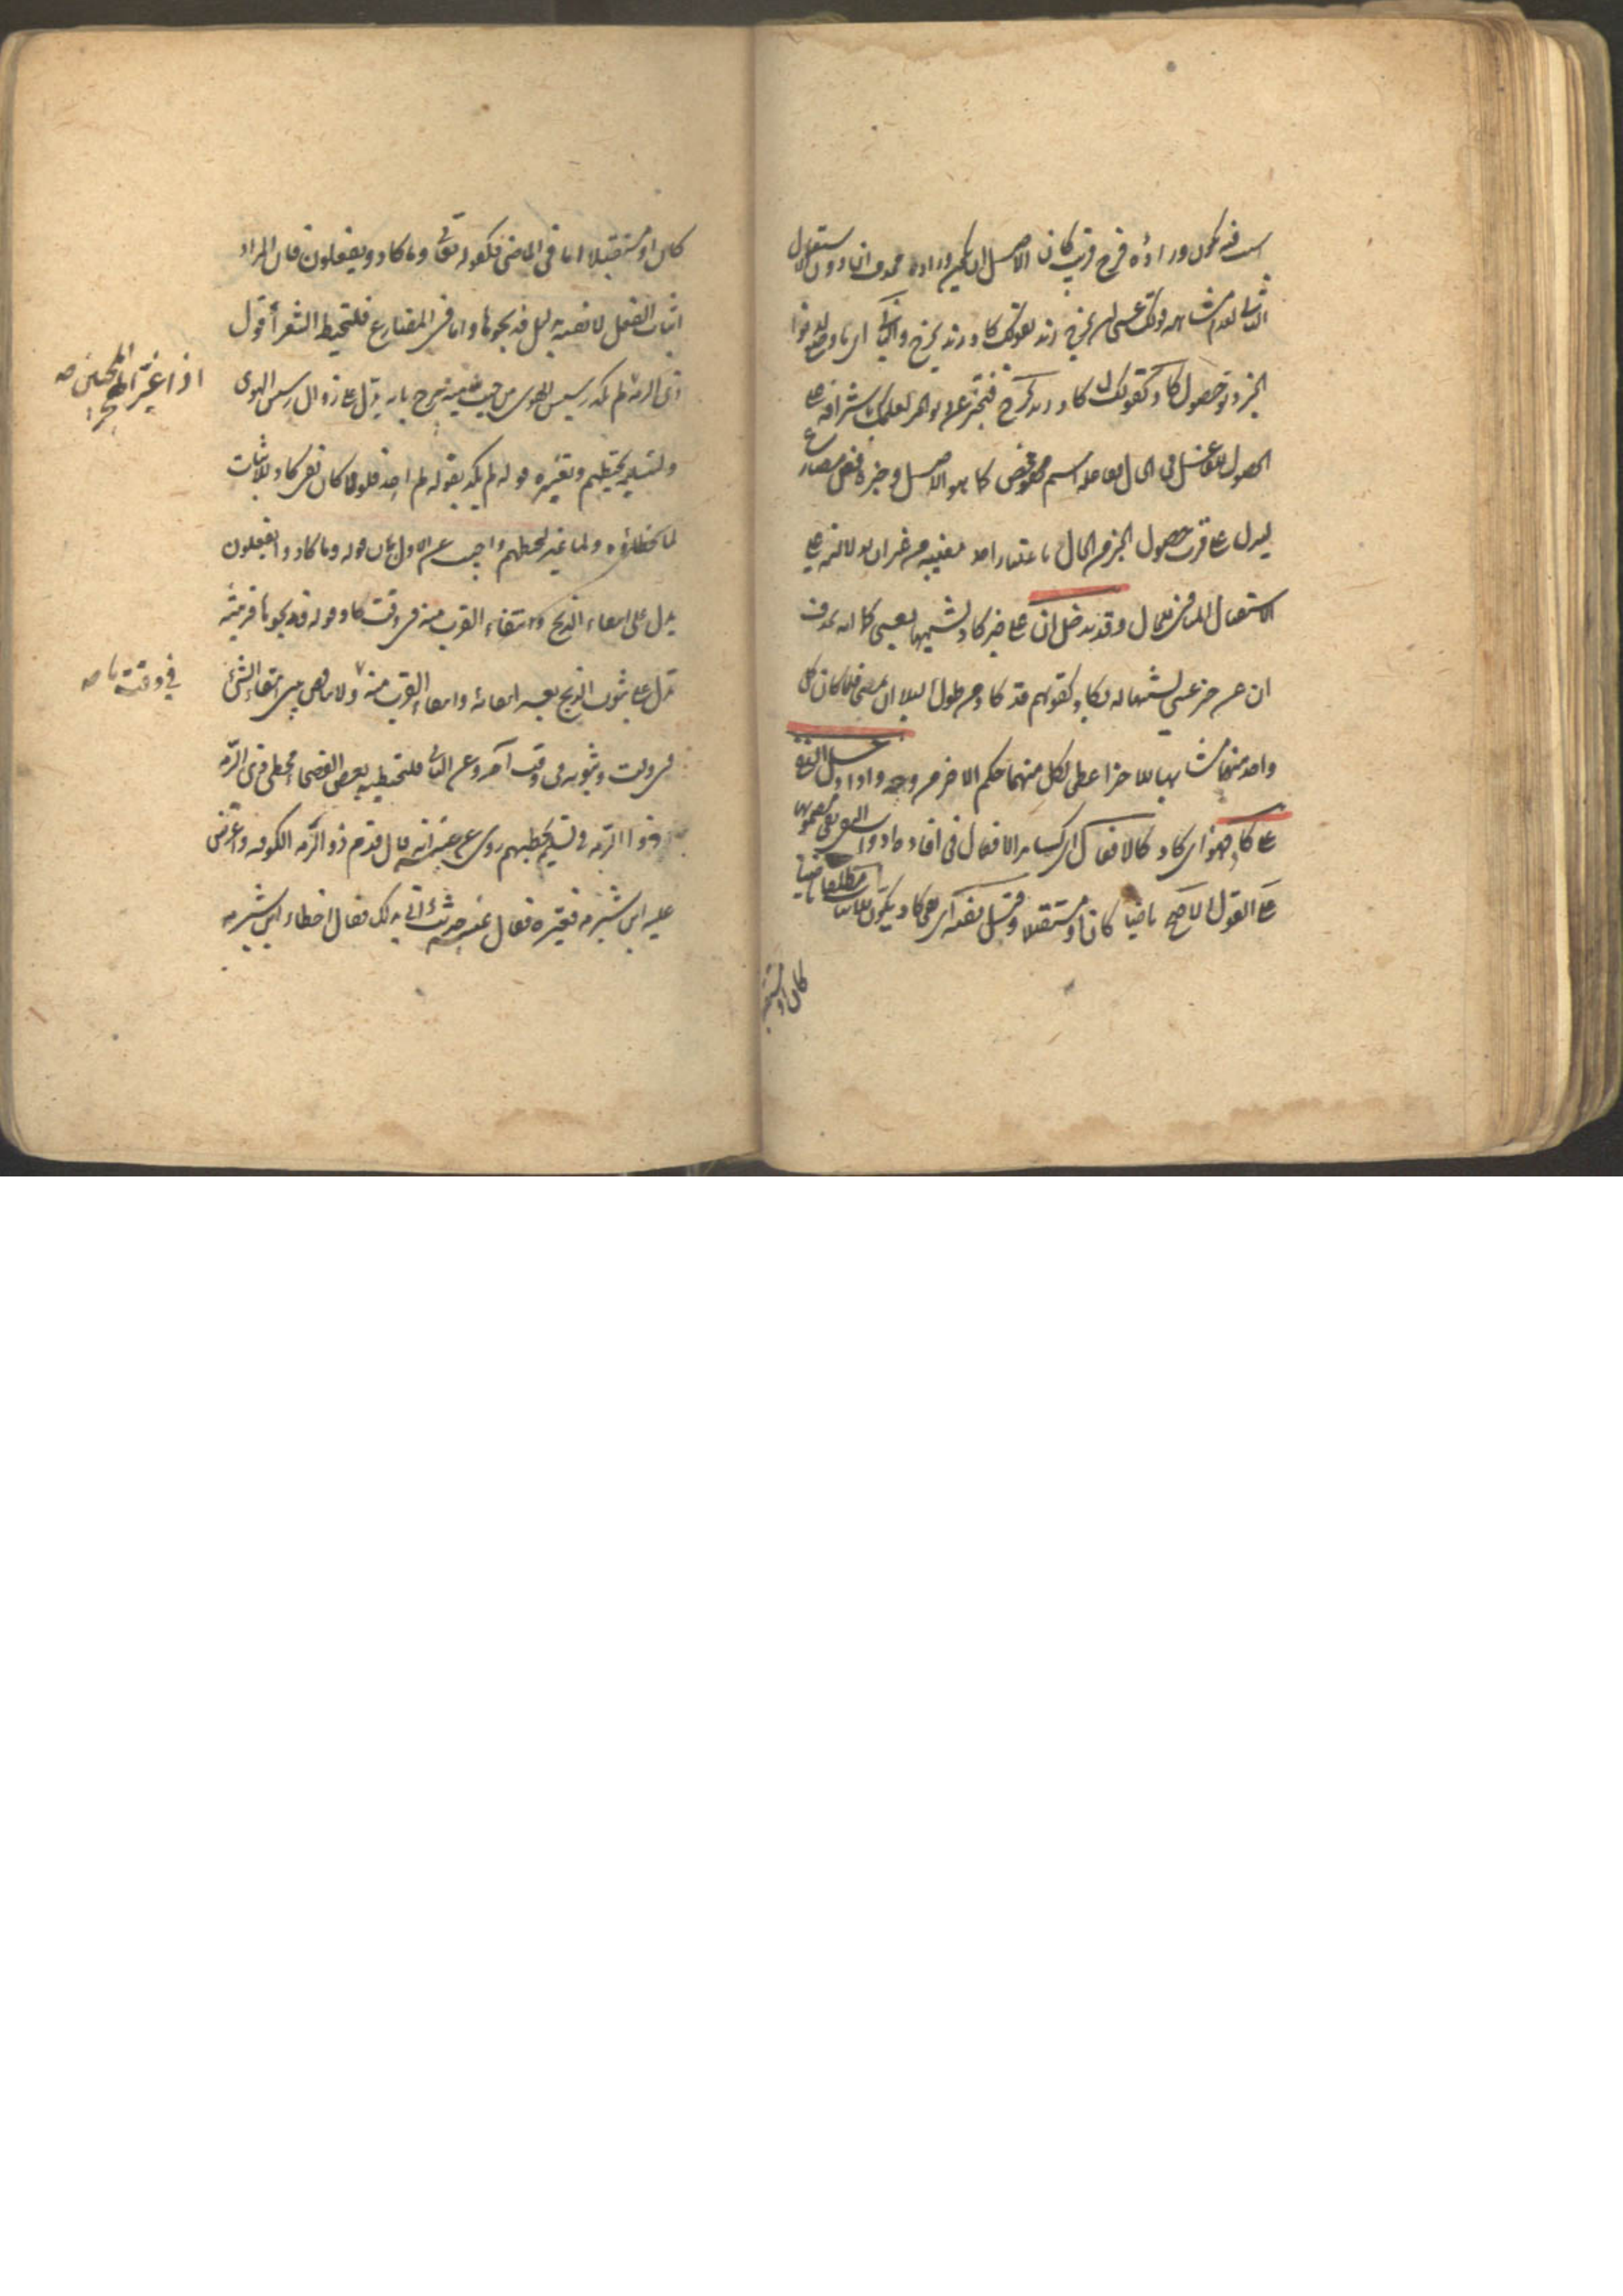 امسيت فيه يكون وراءه فرج قريب كان الاصل ان يكون وراءه فحذف ان دون الاستعمال
الثاني لعدم مشابهة قولك عسى ان يخرج زيد لقولك كاد زيد يخرج والثاني اى ما وضع لدنو
الخبر دنو حصول كاد كقولك كاد زيد يخرج فتخبر عن لعلمك باشرافه على
الحصول للفاعل في الحال ففاعله اسم محض كما هو الاصل وخبره فعل مضارع
ليدل على قرب حصول الخبر من الحال باعتبار احد معنييه من غير ان لدلالته على
الاستقبال المنافي للحال وقد تدخل ان على خبر كاد تشبيها بعسى كما انه تحذف
ان عن خبر عسى تشبيها له بكاد كقولهم قد كاد من طول البلى ان يمصحا فلما كان كل
واحد منهما مشابها للاخر اعطى لكل منهما حكم الاخر من وجه واذا دخل النفي
على كاد فهو اى كاد كالافعال اى كسائر الافعال في افادة ادوات النفي نفي مضمونها
على القول الاصح ماضيا كان او مستقبلا وقيل نفيه اى نفي كاد يكون للاثبات مطلقا ماضيا
كان او مستقبلا
كان او مستقبلا اما في الماضي فكقوله تعالى وما كادوا يفعلون فان المراد
اثبات الفعل لا نفيه بدليل فذبحوها واما في المضارع فلتخطية الشعراء قول
ذى الرمة لم يكد رسيس الهوى من حب مية يبرح بانه يدل على زوال رسيس الهوى
ولتسليمه تخطئتهم وتغييره قوله لم يكد بقوله لم اجد فلولا كان نفي كاد للاثبات
لما خطاؤه ولما غيره لتخطئتهم واجيب عن الاول بان قوله وما كادوا يفعلون
يدل على انتفاء الذبح وانتفاء القرب منه في وقت ما وقوله فذبحوها قرينة
تدل على ثبوت الذبح بعد انتفائه وانتفاء القرب منه ولا تناقض بين انتفاء الشئ
في وقت وثبوته في وقت آخر وعن الثاني فلتخطية بعض الفصحاء مخطئى ذى الرمة
وذا الرمة في تسليمه تخطئتهم روى عن عنبسة انه قال قدم ذو الرمة الكوفة واعترض
عليه ابن شبرمة فغيره فقال عنبسة حدثت ابي بذلك فقال اخطاء ابن شبرمة
اذا غير الهجر المحبين صح
في وقت ما صح